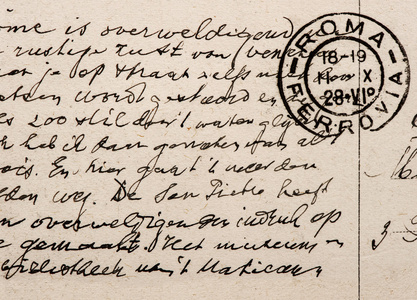 ome is overweldigend
rustige rust van (vene
an je op straat zelfs niet
wordt gestoord en
zoo stil door 't water
k heb ik dan genoten van al
ois. En hier gaat 't weer den
den weg. De San Pietro heeft
n overweldigenden indruk op
e gemaakt. Het museum en
bibliotheek van 't Vaticaan
ROMA
18-19
X
28·VI
FERROVIA